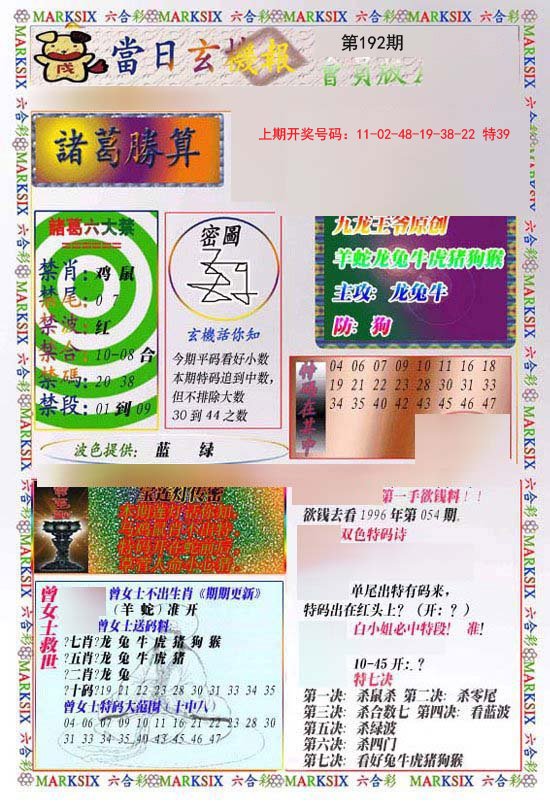 MARKSIX 六合彩 MARKSIX 六合彩 MARKSIX 六合彩 MARKSIX 六合彩
當日玄機报
第192期
上期开奖号码：11-02-48-19-38-22 特39
諸葛勝算
諸葛六大禁
========
禁肖：鸡 鼠
禁尾：0 7
禁波：红
禁合：10-08 合
禁碼：20 38
禁段：01 到 09
密圖
玄機話你知
今期平码看好小数
本期特码追到中数，
但不排除大数
30 到 44 之数
九龙王爷原创
羊蛇龙兔牛虎猪狗猴
主攻：龙兔牛
防：狗
特码在其中
04 06 07 09 10 11 16 18
19 21 22 23 28 30 31 33
34 35 40 42 43 45 46 47
波色提供： 蓝 绿
宝莲灯传密
曾女士救世
曾女士不出生肖《期期更新》
（羊 蛇）准 开
曾女士送码料
?七肖?龙 兔 牛 虎 猪 狗 猴
?五肖?龙 兔 牛 虎 猪
?二肖?龙 兔
?十码?19 21 22 23 28 30 31 33 34 35
曾女士特码大范围（十中八）
04 06 07 09 10 11 16 21 22 23 28 30
31 33 34 35 40 43 45 46 47
第一手欲钱料！！
欲钱去看 1996 年第 054 期.
双色特码诗
单尾出特有码来，
特码出在红头上?（开：？）
白小姐必中特段! 准!
10-45 开：?
特七决
第一决：杀鼠杀 第二决：杀零尾
第三决：杀合数七 第四决：看蓝波
第五决：杀绿波
第六决：杀四门
第七决：看好兔牛虎猪狗猴
MARKSIX 六合彩 MARKSIX 六合彩 MARKSIX 六合彩 MARKSIX 六合彩